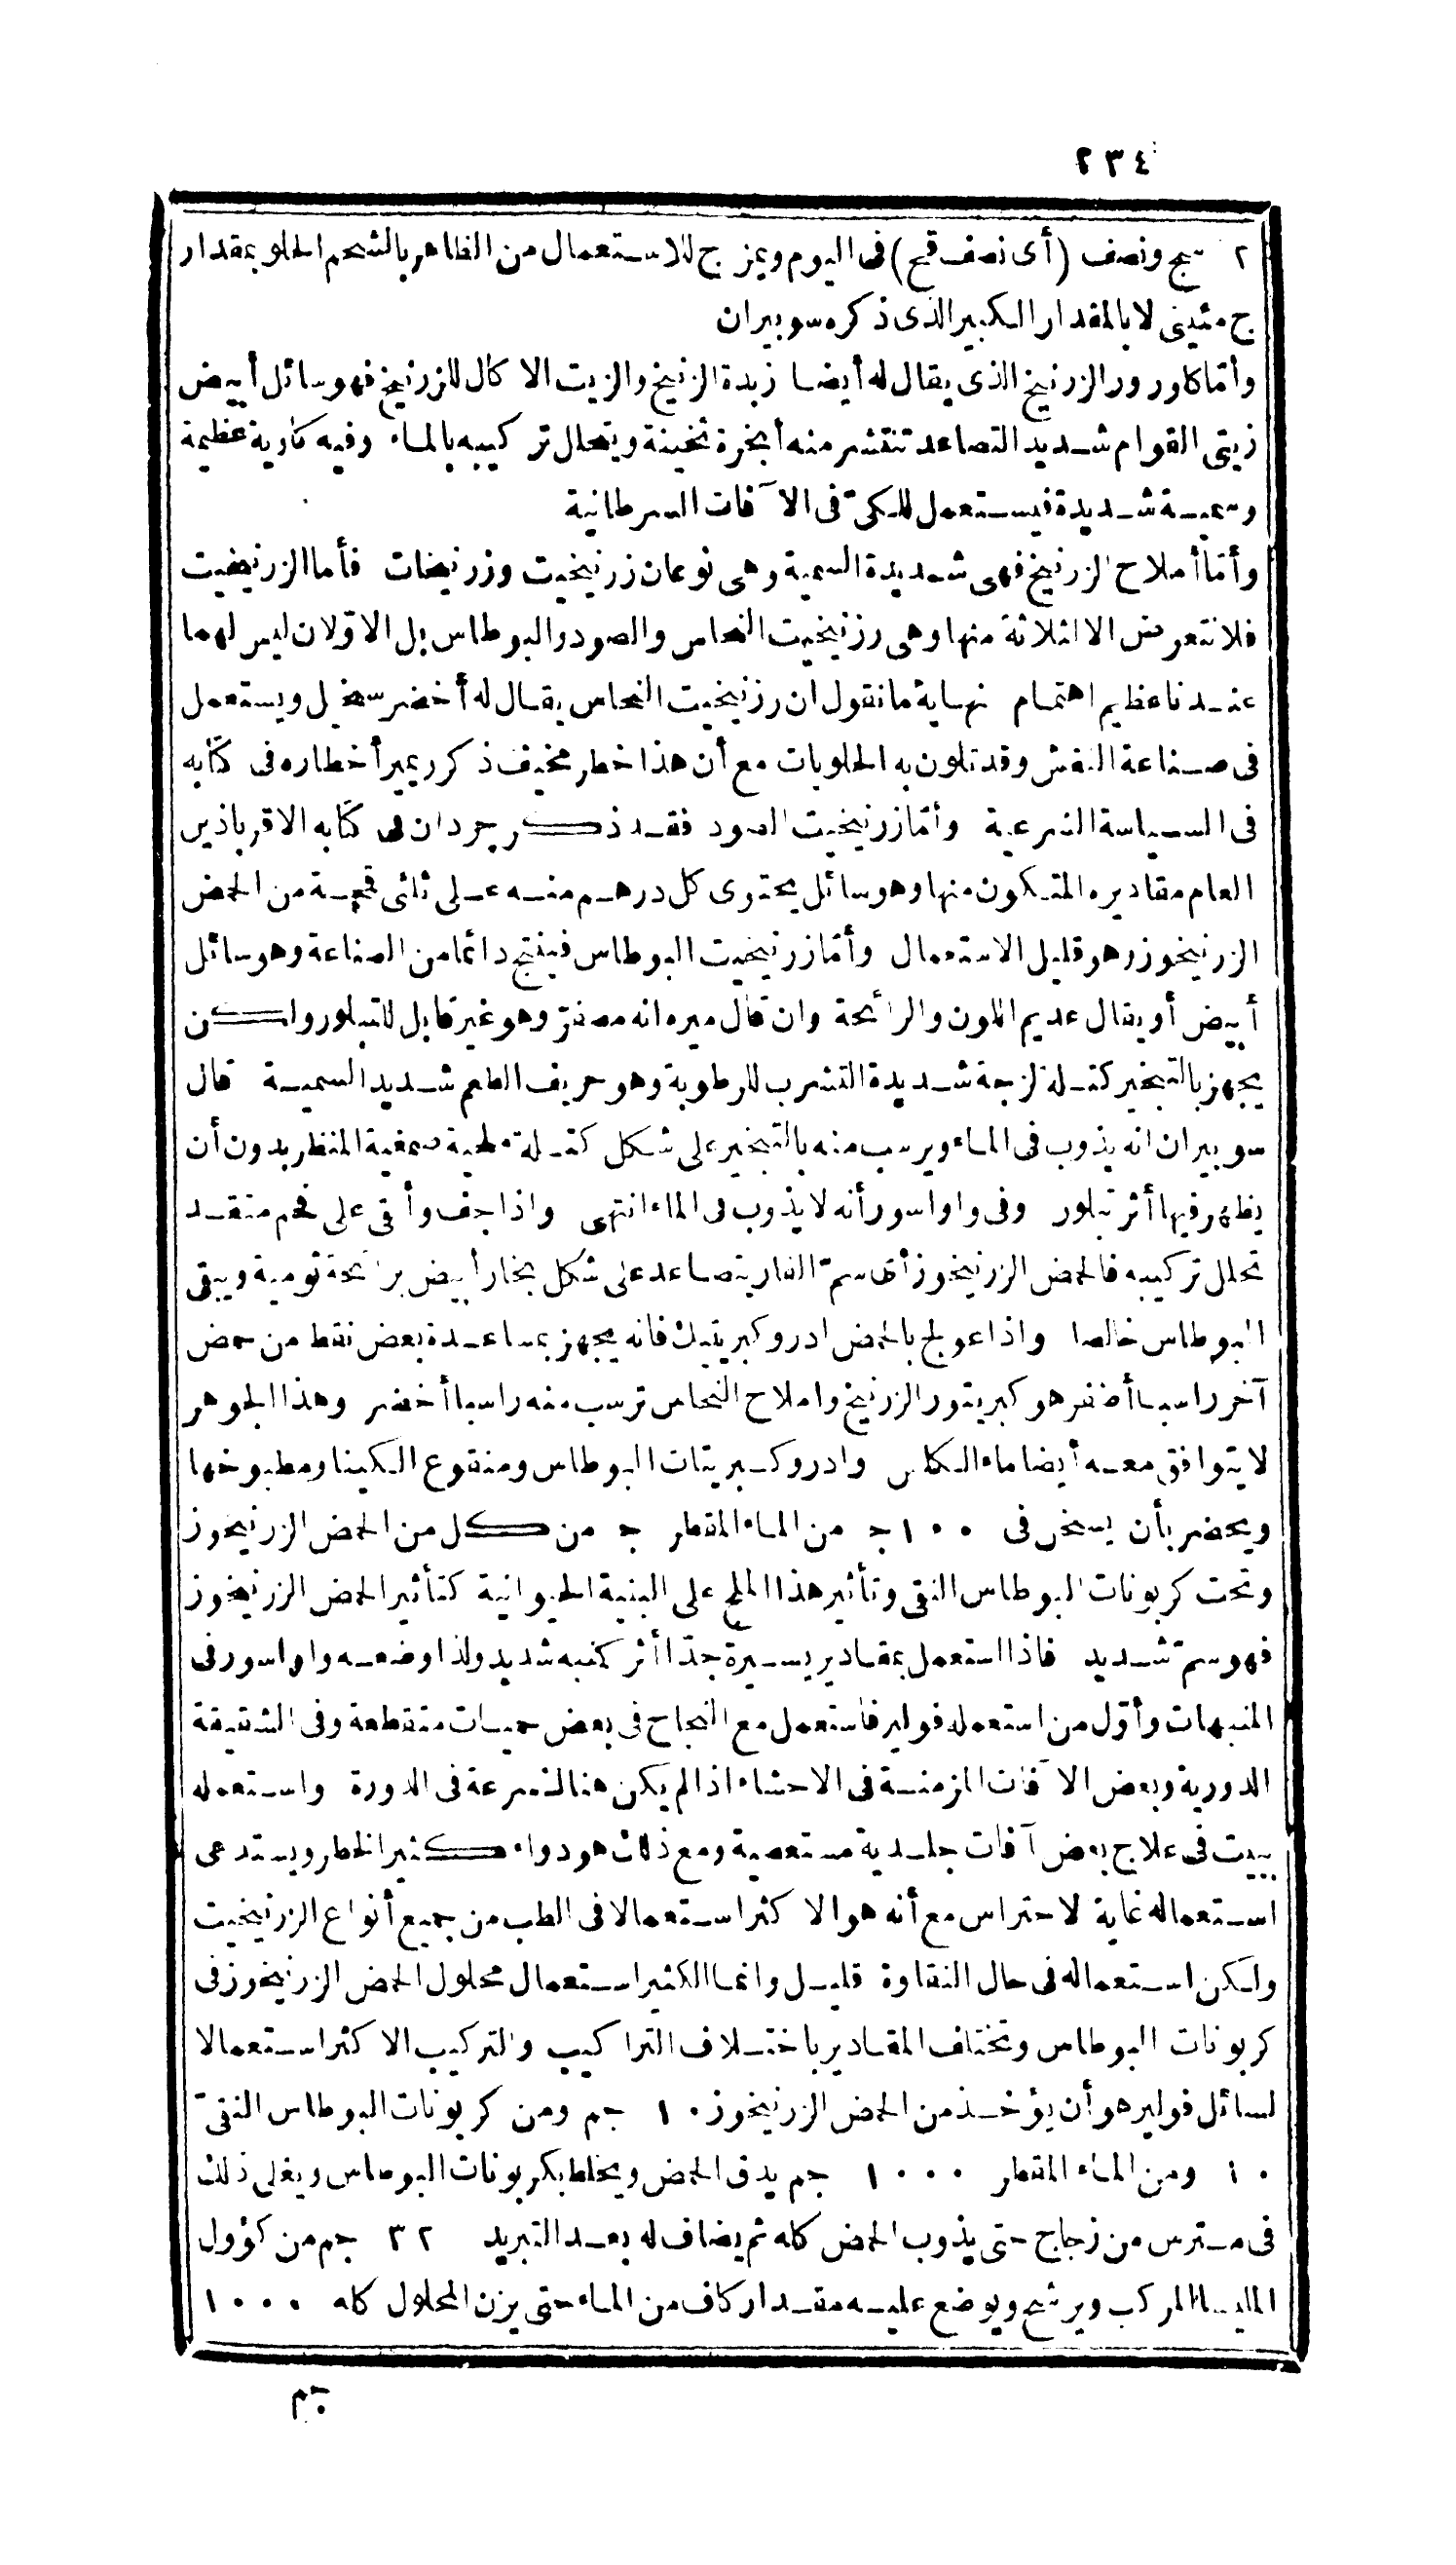 ٢٣٤
٢ سج ونصف (أى نصف قمح) فى اليوم ويمزج للاستعمال من الظاهر بالشحم الحلو بمقدار
ج مئينى لا بالمقدار الكبير الذى ذكره سوبيران
وأما كلورور الزرنيخ الذى يقال له أيضا زبدة الزرنيخ والزيت الاكال للزرنيخ فهو سائل أبيض
زيتى القوام شديد التصاعد تنتشر منه أبخرة ثخينة ويتحلل تركيبه بالماء وفيه كاوية عظيمة
وسمية شديدة فيستعمل للكىّ فى الآفات السرطانية
وأما أملاح الزرنيخ فهى شديدة السمية وهى نوعان زرنيخيت وزرنيخات فأما الزرنيخيت
فلا نتعرض الا لثلاثة منها وهى رزنيخيت النحاس والصود والبوطاس بل الاولان ليس لهما
عندنا عظيم اهتمام نهاية ما نقول ان رزنيخيت النحاس يقال له أخضر سخيل ويستعمل
فى صناعة النقش وقد تلون به الحلويات مع أن هذا خطر مخيف ذكر ريمير أخطاره فى كتابه
فى السياسة الشرعية وأما زرنيخيت الصود فقد ذكر جردان فى كتابه الاقرباذين
العام مقاديره المتكون منها وهو سائل يحتوى كل درهم منه على ثلثى قمحة من الحمض
الزرنيخوز وهو قليل الاستعمال وأما زرنيخيت البوطاس فينتج دائما من الصناعة وهو سائل
أبيض أو يقال عديم اللون والرائحة وان قال ميره انه مصفرّ وهو غير قابل للتبلور ولكن
يجهز بالتبخير كتلة لزجة شديدة التشرب للرطوبة وهو حريف الطعم شديد السمية قال
سوبيران انه يذوب فى الماء ويرسب منه بالتبخير على شكل كتلة ملحية صمغية المنظر بدون أن
يظهر فيها أثر تبلور وفى واواسور أنه لا يذوب فى الماء انتهى واذا جف وألقى على فحم متقد
تحلل تركيبه فالحمض الزرنيخوز أى سمّ الفار يتصاعد على شكل بخار أبيض برائحة ثومية ويبقى
البوطاس خالصا واذا عولج بالحمض ادروكبريتيك فانه يجهز بمساعدة بعض نقط من حمض
آخر راسبا أصفر هو كبريتور الزرنيخ واملاح النحاس ترسب منه راسبا أخضر وهذا الجوهر
لا يتوافق معه أيضا ماء الكلس وادروكبريتات البوطاس ومنقوع الكينا ومطبوخها
ويحضر بأن يسخن فى ١٠٠ ج من الماء المقطر ج من كل من الحمض الزرنيخوز
وتحت كربونات البوطاس النقى وتأثير هذا الملح على البنية الحيوانية كتأثير الحمض الزرنيخوز
فهو سمّ شديد فاذا استعمل بمقادير يسيرة جدّا أثر كمنبه شديد ولذا وضعه واواسور فى
المنبهات وأوّل من استعمله فولير فاستعمل مع النجاح فى بعض حميات متقطعة وفى الشقيقة
الدورية وبعض الآفات المزمنة فى الاحشاء اذا لم يكن هناك سرعة فى الدورة واستعمله
بييت فى علاج بعض آفات جلدية مستعصية ومع ذلك هو دواء كثير الخطر ويستدعى
استعماله غاية الاحتراس مع أنه هو الاكثر استعمالا فى الطب من جميع أنواع الزرنيخيت
ولكن استعماله فى حال النقاوة قليل وانما الكثير استعمال محلول الحمض الزرنيخوز فى
كربونات البوطاس وتختلف المقادير باختلاف التراكيب والتركيب الاكثر استعمالا
لسائل فولير هو أن يؤخذ من الحمض الزرنيخوز ١٠ جم ومن كربونات البوطاس النقىّ
١٠ ومن الماء المقطر ١٠٠٠ جم يدق الحمض ويخلط بكربونات البوطاس ويغلى ذلك
فى مترس من زجاج حتى يذوب الحمض كله ثم يضاف له بعد التبريد ٣٢ جم من كؤول
المليسا المركب ويرشح ويوضع عليه مقدار كاف من الماء حتى يزن المحلول كله ١٠٠٠
جم